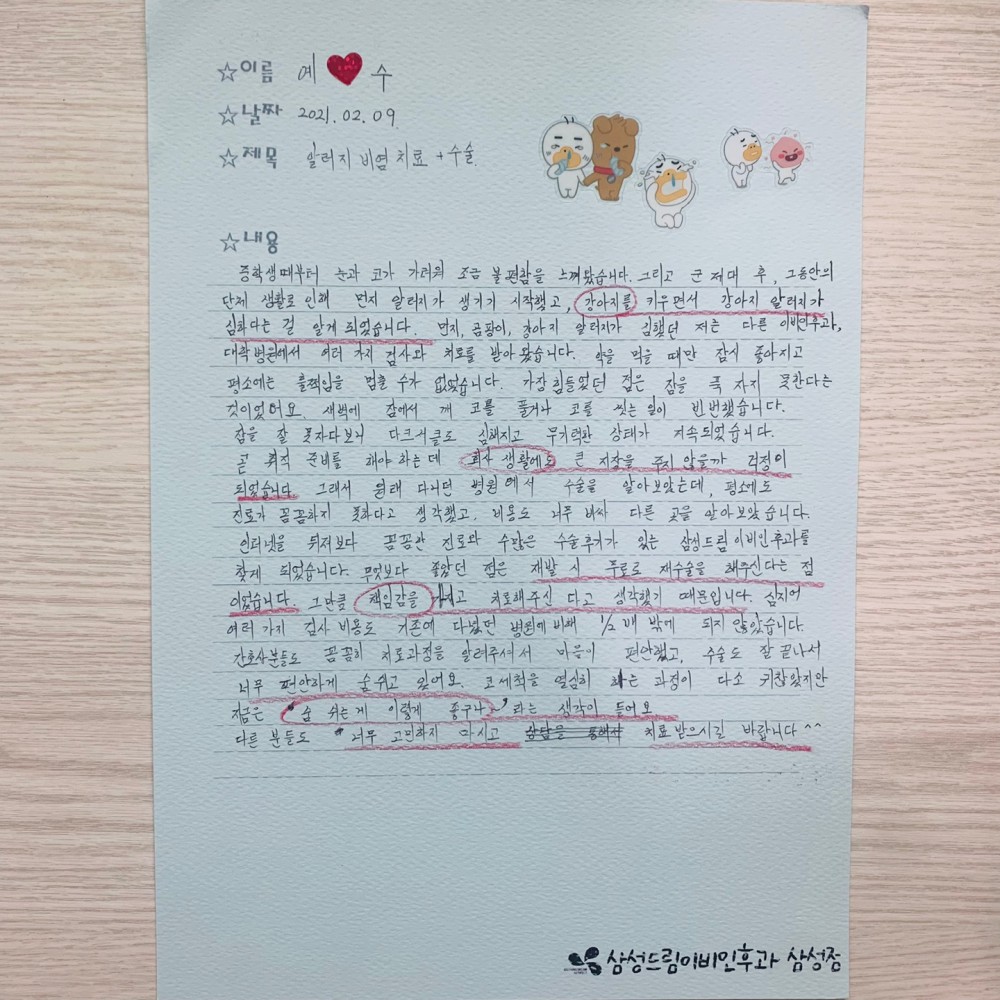 ☆이름 예♥수
☆날짜 2021.02.09
☆제목 알러지 비염 치료 + 수술.
☆내용
중학생때부터 눈과 코가 가려워 조금 불편함을 느껴왔습니다. 그리고 군 제대 후, 그동안의
단체 생활로 인해 먼지 알러지가 생기기 시작했고, 강아지를 키우면서 강아지 알러지가
심하다는 걸 알게 되었습니다. 먼지, 곰팡이, 강아지 알러지가 심했던 저는 다른 이비인후과,
대학병원에서 여러 가지 검사와 치료를 받아 왔습니다. 약을 먹을 때만 잠시 좋아지고
평소에는 훌쩍임을 멈출 수가 없었습니다. 가장 힘들었던 점은 잠을 푹 자지 못한다는
것이었어요. 새벽에 잠에서 깨 코를 풀거나 코를 씻는 일이 빈번했습니다.
잠을 잘 못자다보니 다크서클도 심해지고 무기력한 상태가 지속되었습니다.
곧 취직 준비를 해야 하는데 회사 생활에도 큰 지장을 주지 않을까 걱정이
되었습니다. 그래서 원래 다니던 병원에서 수술을 알아보았는데, 평소에도
진료가 꼼꼼하지 못하다고 생각했고, 비용도 너무 비싸 다른 곳을 알아보았습니다.
인터넷을 뒤져보다 꼼꼼한 진료와 수많은 수술후기가 있는 삼성드림이비인후과를
찾게 되었습니다. 무엇보다 좋았던 점은 재발 시 무료로 재수술을 해주신다는 점
이었습니다. 그만큼 책임감을 가지고 치료해주신다고 생각했기 때문입니다. 심지어
여러 가지 검사 비용도 기존에 다녔던 병원에 비해 1/2 배 밖에 되지 않았습니다.
간호사분들도 꼼꼼히 치료과정을 알려주셔서 마음이 편안했고, 수술도 잘 끝나서
너무 편안하게 숨쉬고 있어요. 코세척을 열심히 하는 과정이 다소 귀찮았지만
지금은 "숨 쉬는게 이렇게 좋구나" 라는 생각이 들어요
다른 분들도 너무 고민하지 마시고 상담을 통해서 치료 받으시길 바랍니다 ^^
삼성드림이비인후과 삼성점